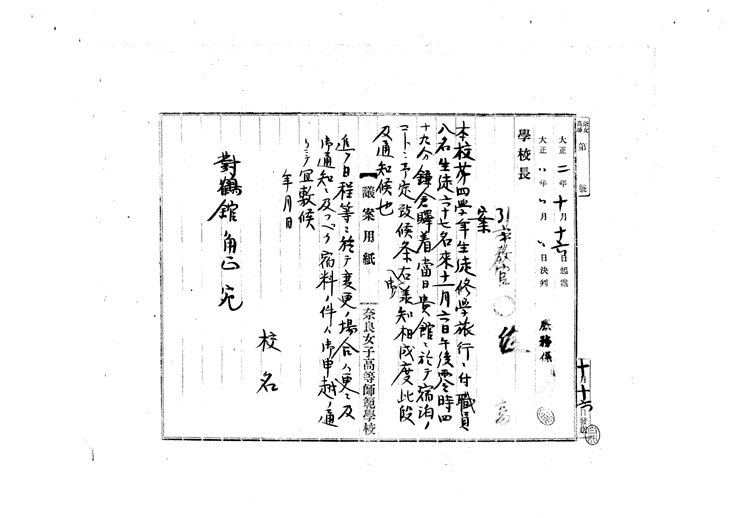 奈女高師 第 號
大正二年十月十六日起案
大正 年 月 日決判
庶務係
十月十六日發送
學校長
引率教官
案
本校第四學年生徒修學旅行ニ付職員
八名生徒六十七名來十一月六日午後零時四
十九分鎌倉驛着當日貴館ニ於テ宿泊ノ
コトニ予定致候条右御義知相成度此段
及通知候也
追テ日程等ニ於テ変更ノ場合ハ更ニ及
御通知ニ及ブベク宿料ノ件ハ御申越ノ通
ニテ宜敷候
年月日
校名
對鶴館角正宛
議案用紙
奈良女子高等師範學校